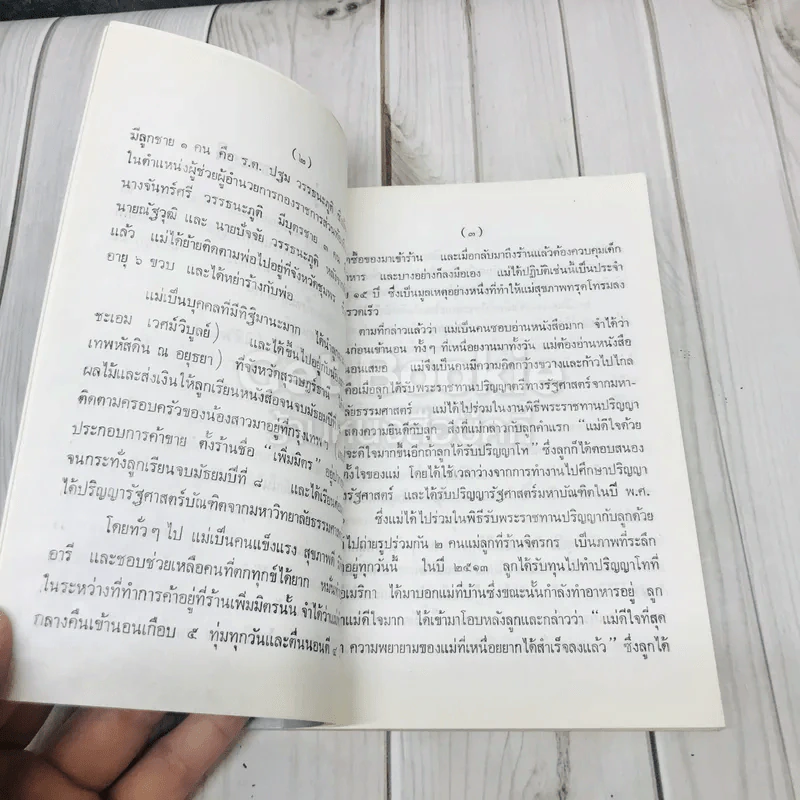 (๒)
มีลูกชาย ๑ คน คือ ร.ต. ปฐม วรรธนะภูติ
ในตำแหน่งผู้ช่วยผู้อำนวยการกองราชการส่วน
นางจันทร์ศรี วรรธนะภูติ มีบุตรชาย ๓ คน
นายณัฐวุฒิ และ นายปัจจัย วรรธนะภูติ
แล้ว แม่ได้ย้ายติดตามพ่อไปอยู่ที่จังหวัดชุมพร
อายุ ๖ ขวบ และได้หย่าร้างกับพ่อ
แม่เป็นบุคคลที่มีทิฐิมานะมาก ได้
ชะเอม เวศม์วิบูลย์) และได้ขึ้นไปอยู่กับ
เทพหัสดิน ณ อยุธยา) ที่จังหวัดสุราษฎร์ธานี
ผลไม้และส่งเงินให้ลูกเรียนหนังสือจนจบมัธยมปีที่
ติดตามครอบครัวของน้องสาวมาอยู่ที่กรุงเทพฯ
ประกอบการค้าขาย ตั้งร้านชื่อ “เพิ่มมิตร”
จนกระทั่งลูกเรียนจบมัธยมปีที่ ๘ และได้เรียน
ได้ปริญญารัฐศาสตร์บัณฑิตจากมหาวิทยาลัยธรรมศาสตร์
โดยทั่วๆ ไป แม่เป็นคนแข็งแรง สุขภาพดี
อารี และชอบช่วยเหลือคนที่ตกทุกข์ได้ยาก
ในระหว่างที่ทำการค้าอยู่ที่ร้านเพิ่มมิตรนั้น จำได้ว่า
กลางคืนเข้านอนเกือบ ๕ ทุ่มทุกวันและตื่นนอนตี ๔
(๓)
ซื้อของมาเข้าร้าน และเมื่อกลับมาถึงร้านแล้วต้องควบคุมเด็ก
หาร และบางอย่างก็ลงมือเอง แม่ได้ปฏิบัติเช่นนี้เป็นประจำ
๑๕ ปี ซึ่งเป็นมูลเหตุอย่างหนึ่งที่ทำให้แม่สุขภาพทรุดโทรมลง
รวดเร็ว
ตามที่กล่าวแล้วว่า แม่เป็นคนชอบอ่านหนังสือมาก จำได้ว่า
นก่อนเข้านอน ทั้งๆ ที่เหนื่อยงานมาทั้งวัน แม่ต้องอ่านหนังสือ
นอนเสมอ แม่จึงเป็นคนมีความคิดกว้างขวางและก้าวไปไกล
คือเมื่อลูกได้รับพระราชทานปริญญาตรีทางรัฐศาสตร์จากมหา-
ลัยธรรมศาสตร์ แม่ได้ไปร่วมในงานพิธีพระราชทานปริญญา
สดงความยินดีกับลูก สิ่งที่แม่กล่าวกับลูกคำแรก “แม่ดีใจด้วย
จะดีใจมากขึ้นอีกถ้าลูกได้รับปริญญาโท” ซึ่งลูกก็ได้ตอบสนอง
ตั้งใจของแม่ โดยได้ใช้เวลาว่างจากการทำงานไปศึกษาปริญญา
รัฐศาสตร์ และได้รับปริญญารัฐศาสตร์มหาบัณฑิตในปี พ.ศ.
ซึ่งแม่ได้ไปร่วมในพิธีรับพระราชทานปริญญากับลูกด้วย
ไปถ่ายรูปร่วมกัน ๒ คนแม่ลูกที่ร้านจิตรกร เป็นภาพที่ระลึก
อยู่ทุกวันนี้ ในปี ๒๕๑๓ ลูกได้รับทุนไปทำปริญญาโทที่
เมริกา ได้มาบอกแม่ที่บ้านซึ่งขณะนั้นกำลังทำอาหารอยู่ ลูก
แม่ดีใจมาก ได้เข้ามาโอบหลังลูกและกล่าวว่า “แม่ดีใจที่สุด
ความพยายามของแม่ที่เหนื่อยยากได้สำเร็จลงแล้ว” ซึ่งลูกได้